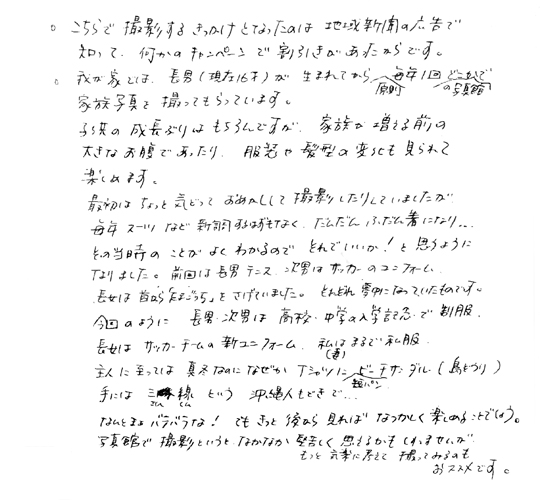 ○ こちらで撮影するきっかけとなったのは地域新聞の広告で
知って、何かのキャンペーンで割引きがあったからです。
○ 我が家では、長男(現在16才)が生まれてから毎年1回どこかで
原則 の写真館
家族写真を撮ってもらっています。
子供の成長ぶりはもちろんですが、家族が増える前の
大きなお腹であったり、服装や髪型の変化も見られて
楽しめます。
最初はちょっと気どっておめかしして撮影したりしていましたが
毎年スーツなど新調するはずもなく、だんだんふだん着になり…
その当時のことがよくわかるので それでいいか!と思うように
なりました。前回は長男テニス、次男はサッカーのユニフォーム、
長女は首から「たまごっち」をさげていました。それぞれ夢中になっていたものです。
今回のように 長男・次男は高校・中学の入学記念で制服、
長女はサッカーチームの新ユニフォーム、私はまるで私服、
(妻)
主人に至っては真冬なのになぜかTシャツにビーチサンダル(島ぞうり)
短パン
手には三線という沖縄人もどきで…
さん しん
なんとまぁバラバラな!でもきっと後から見ればなつかしく楽しめることでしょう。
写真館で撮影というとなかなか堅苦しく思えるかもしれませんが
もっと気楽に考えて撮ってみるのも
おススメです。